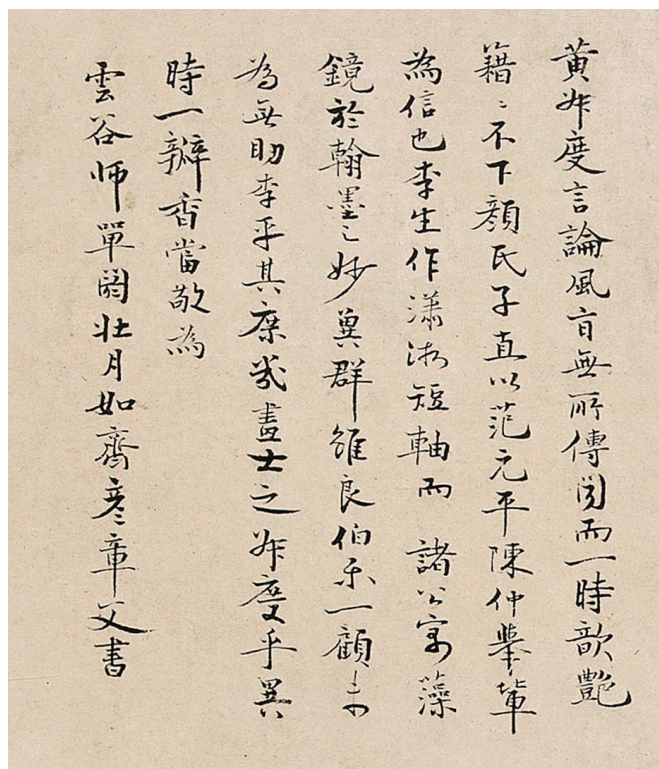 黃叔度言論風旨無所傳聞而一時歆艷
籍〻不下顏氏子直以范元平陳仲舉輩
為信也李生作瀟湘短軸而諸公寓藻
鏡於翰墨之妙冀群雖良伯樂一顧未
為無助李乎其庶幾畫士之叔度乎異
時一瓣香當敬為
雲谷師單閼壯月如齋彥章父書